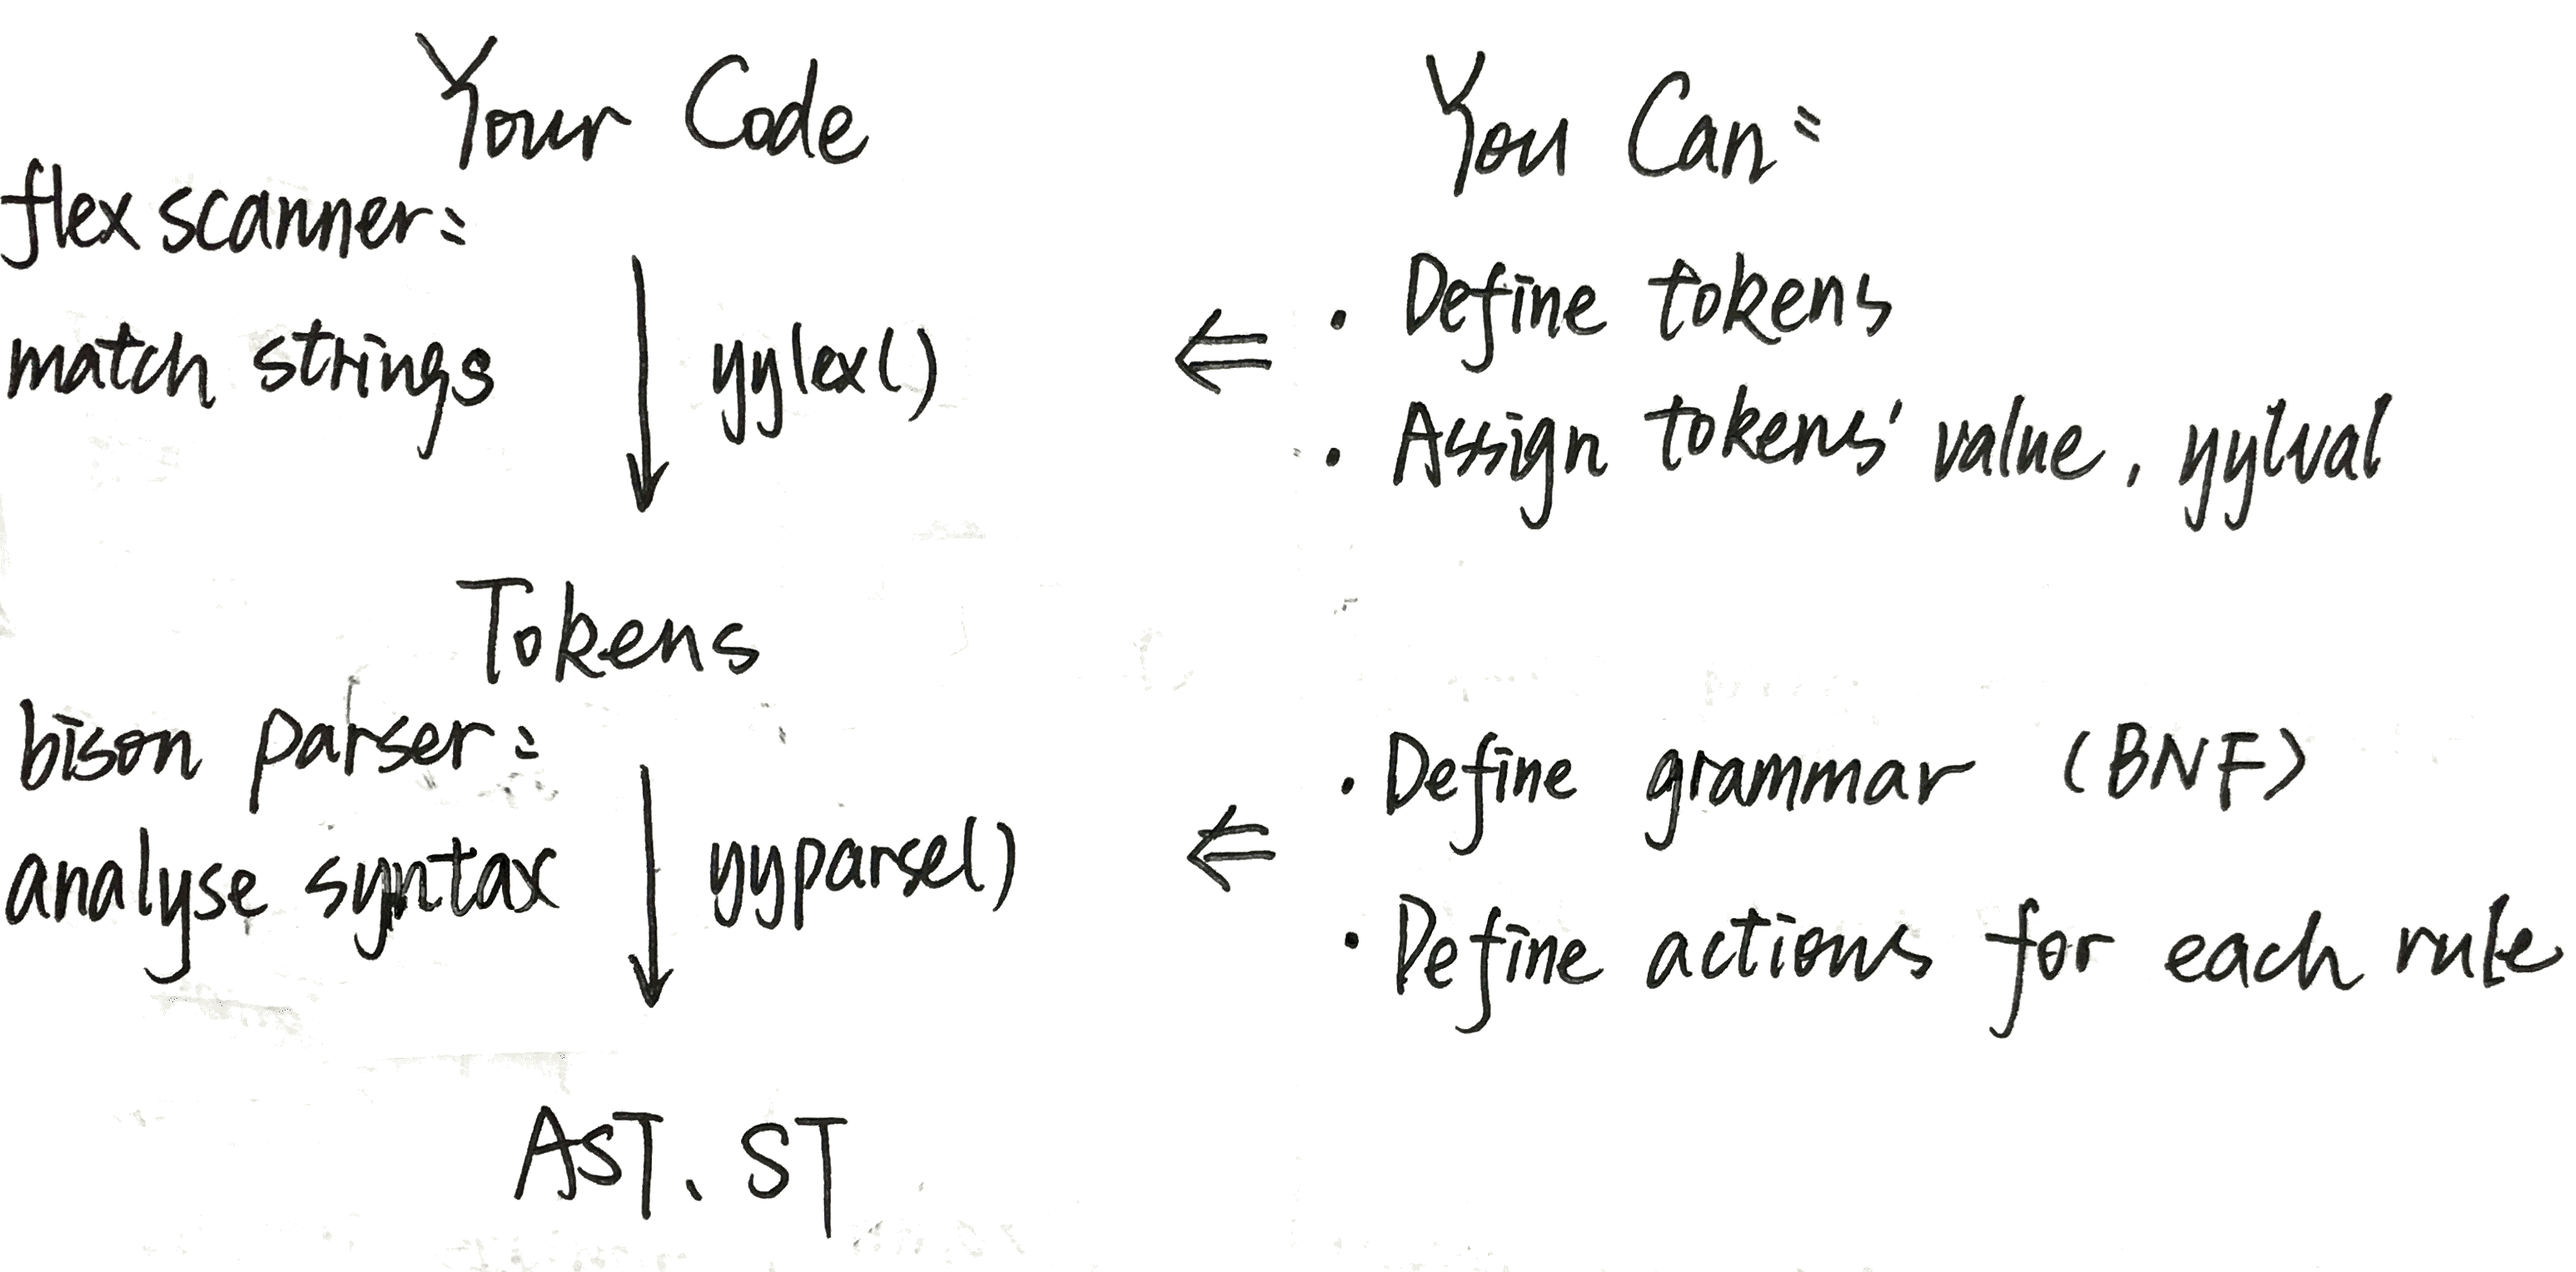 Your Code
flex scanner:
match strings
yylex()
Tokens
bison parser:
analyse syntax
yyparse()
AST、ST
You Can:
⇐
· Define tokens
· Assign tokens' value, yylval
⇐
· Define grammar (BNF)
· Define actions for each rule